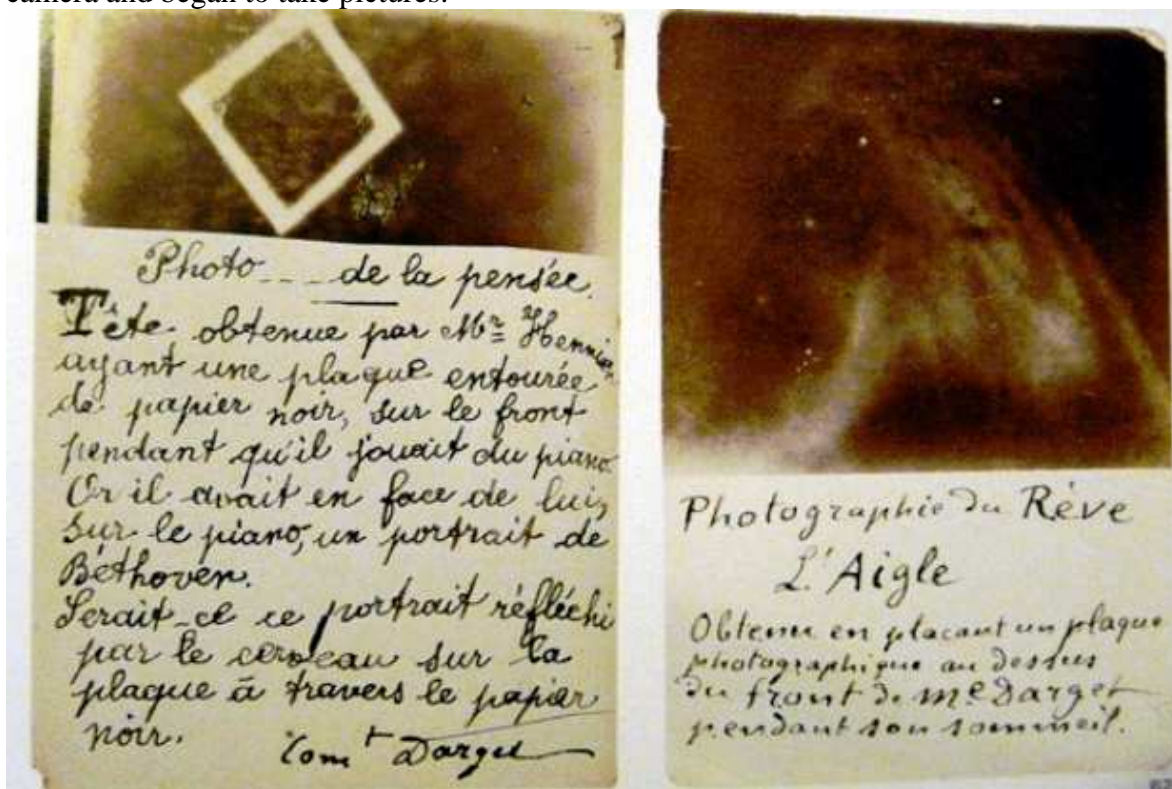 camera and began to take pictures.
Photo --- de la pensée.
Tête obtenue par Mr Hennier
ayant une plaque entourée
de papier noir, sur le front
pendant qu'il jouait du piano
Or il avait en face de lui,
sur le piano, un portrait de
Béthoven.
Serait-ce ce portrait réfléchi
par le cerveau sur la
plaque à travers le papier
noir.
Comt Darget
Photographie du Rêve
L'Aigle
Obtenu en plaçant un plaque
photographique au dessus
du front de Me Darget
pendant son sommeil.